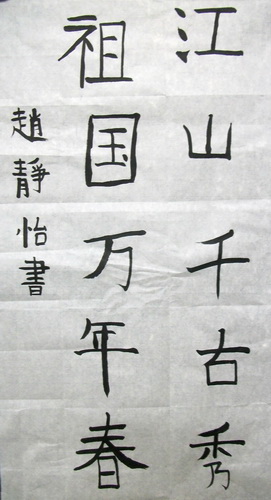 江山千古秀
祖国万年春
趙靜怡書